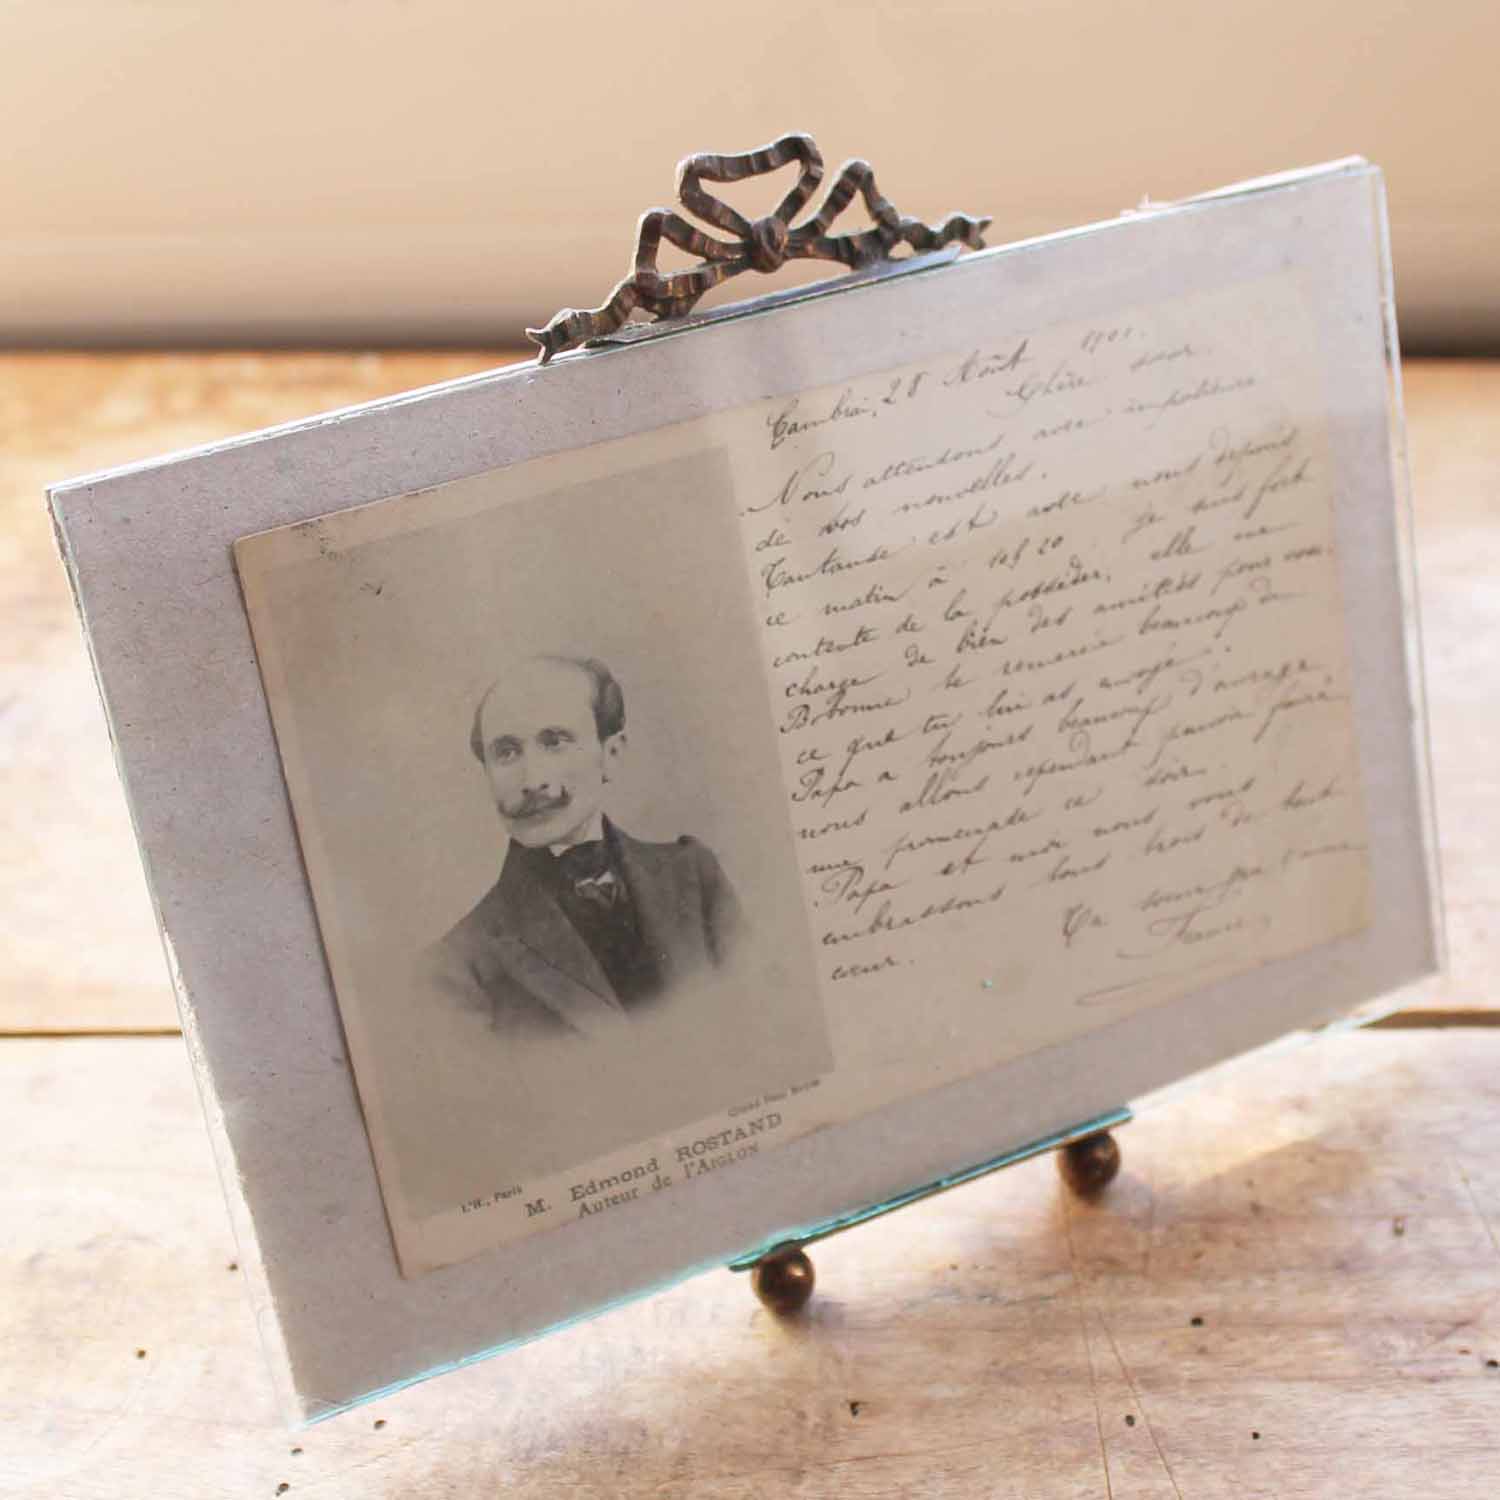 Cambrai, 28 Août 1901.
Chère soeur.
Nous attendons avec impatience
de vos nouvelles.
Tantande est avec nous depuis
ce matin à 10h 20. Je suis fort
contente de la posséder, elle me
charge de bien des amitiés pour vous.
Bobonne te remercie beaucoup de
ce que tu lui as envoyé.
Papa a toujours beaucoup d'ouvrage
nous allons cependant pouvoir faire
une promenade ce soir.
Papa et moi nous vous
embrassons tous trois de tout
coeur.
Ta soeur qui t'aime
Cliché Paul Boyer
L'H., Paris
M. Edmond ROSTAND
Auteur de l'AIGLON